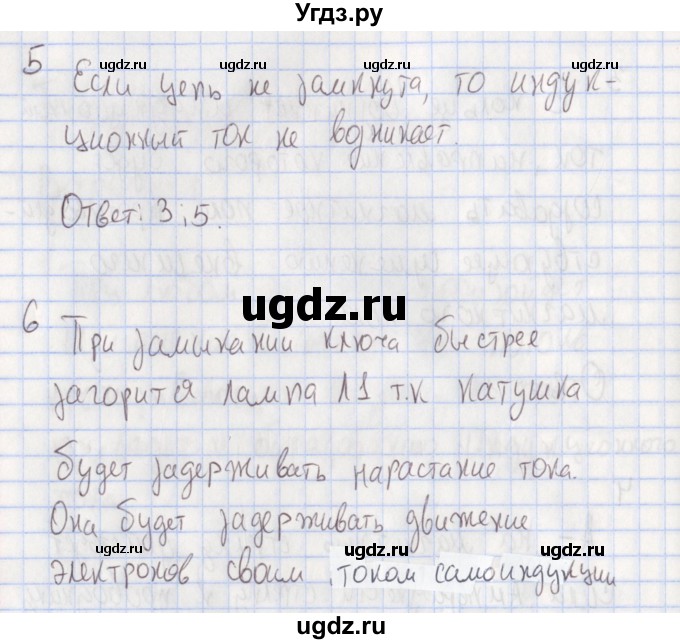 Угдз.ру
5
Если цепь не замкнута, то индук-
ционный ток не возникает.
Ответ: 3; 5.
6
При замыкании ключа быстрее
загорится лампа Л1 т.к катушка
будет задерживать нарастание тока.
Она будет задерживать движение
электронов своим током самоиндукции
ugdz.ru
ugdz.ru
ugdz.ru
ugdz.ru
ugdz.ru
ugdz.ru
ugdz.ru
ugdz.ru
ugdz.ru
ugdz.ru
ugdz.ru